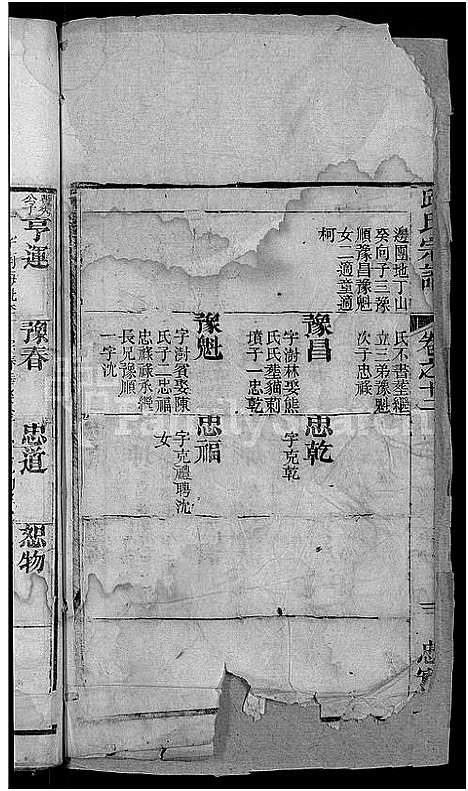 邱氏宗譜
卷之十二
一
忠
邊團地丁山
癸向子三豫
順豫昌豫魁
女二適童適
柯
氏不書塟繼
立三弟豫魁
次子忠祿
豫昌
字澍林娶熊
氏氏塟貓莿
墳子一忠乾
忠乾
字克乾
豫魁
字澍賓娶陳
氏子二忠福
忠祿祿承繼
長兄豫順
一字沈
忠福
字克禮聘沈
女
亨運
豫春
忠道
恕物
FamilySearch